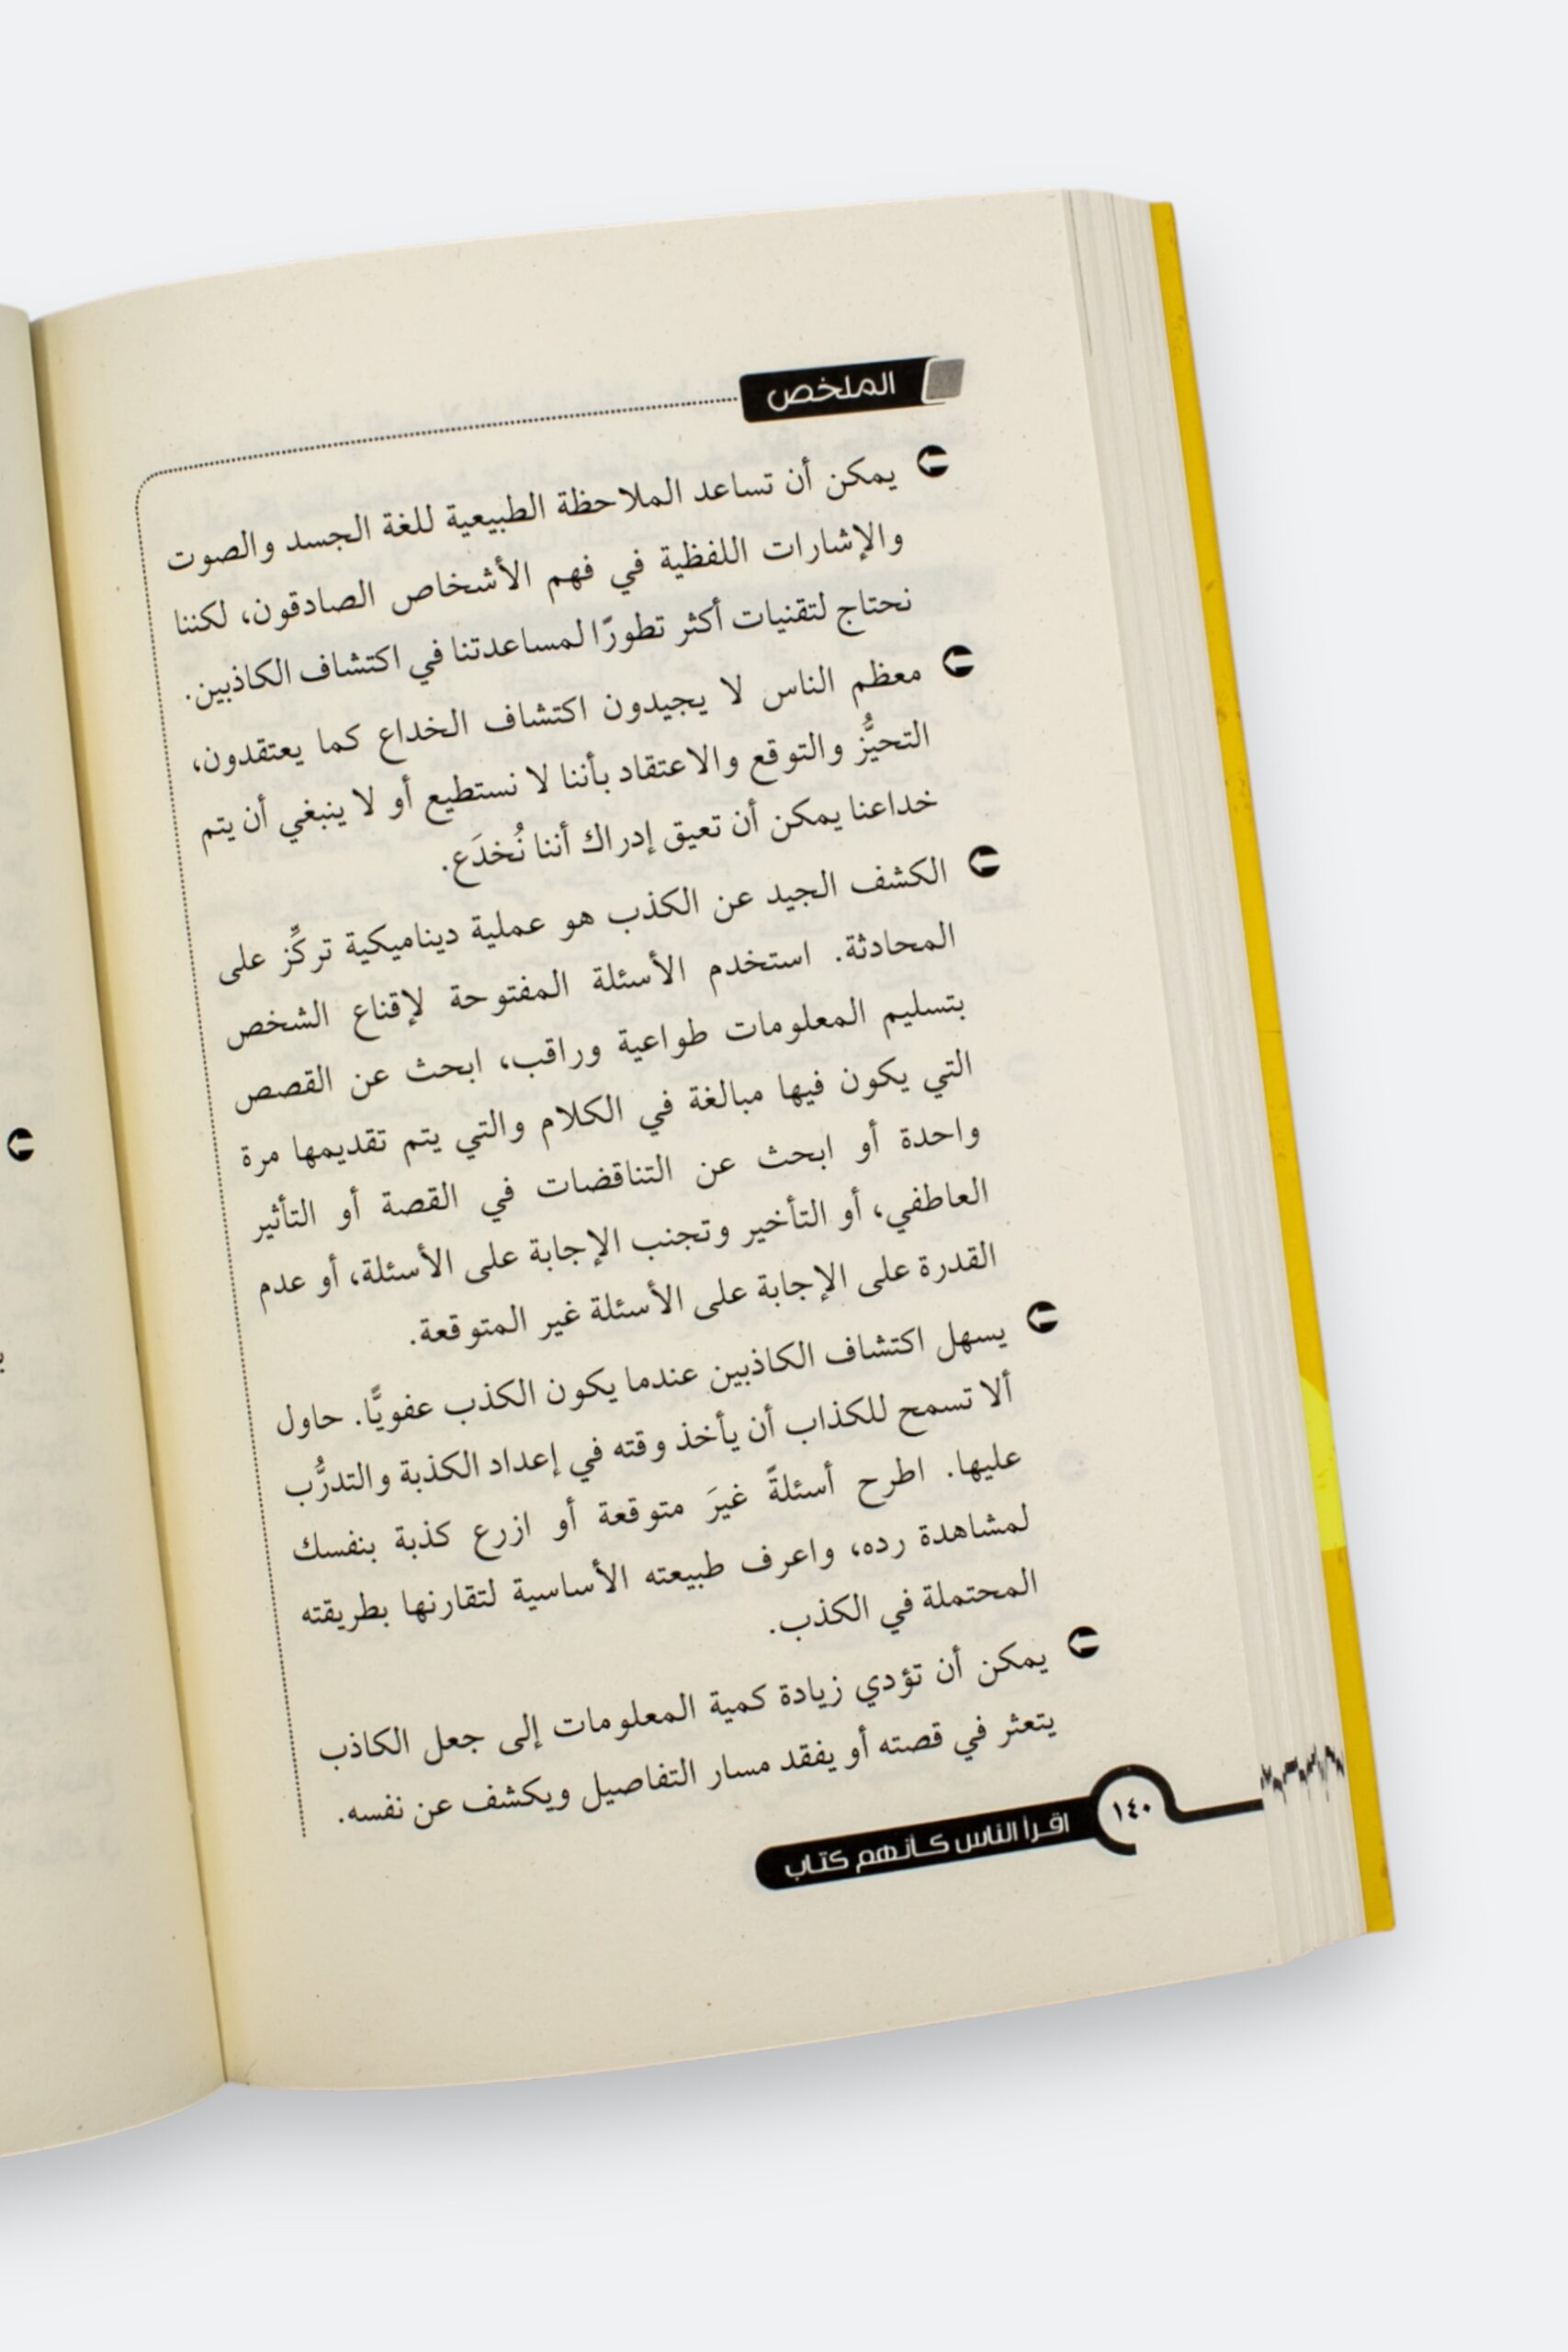 الملخص
يمكن أن تساعد الملاحظة الطبيعية للغة الجسد والصوت
والإشارات اللفظية في فهم الأشخاص الصادقون، لكننا
نحتاج لتقنيات أكثر تطورًا لمساعدتنا في اكتشاف الكاذبين.
معظم الناس لا يجيدون اكتشاف الخداع كما يعتقدون،
التحيُّز والتوقع والاعتقاد بأننا لا نستطيع أو لا ينبغي أن يتم
خداعنا يمكن أن تعيق إدراك أننا نُخدَع.
الكشف الجيد عن الكذب هو عملية ديناميكية تركِّز على
المحادثة. استخدم الأسئلة المفتوحة لإقناع الشخص
بتسليم المعلومات طواعية وراقب، ابحث عن القصص
التي يكون فيها مبالغة في الكلام والتي يتم تقديمها مرة
واحدة أو ابحث عن التناقضات في القصة أو التأثير
العاطفي، أو التأخير وتجنب الإجابة على الأسئلة، أو عدم
القدرة على الإجابة على الأسئلة غير المتوقعة.
يسهل اكتشاف الكاذبين عندما يكون الكذب عفويًّا. حاول
ألا تسمح للكذاب أن يأخذ وقته في إعداد الكذبة والتدرُّب
عليها. اطرح أسئلةً غيرَ متوقعة أو ازرع كذبة بنفسك
لمشاهدة رده، واعرف طبيعته الأساسية لتقارنها بطريقته
المحتملة في الكذب.
يمكن أن تؤدي زيادة كمية المعلومات إلى جعل الكاذب
يتعثر في قصته أو يفقد مسار التفاصيل ويكشف عن نفسه.
١٤٠ اقرأ الناس كأنهم كتاب